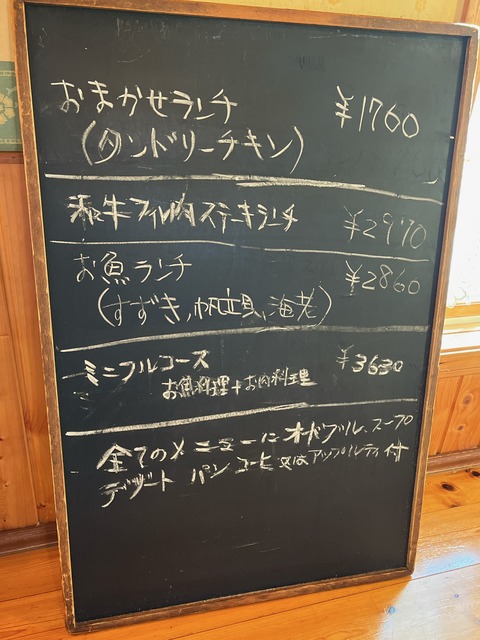 おまかせランチ ¥1760
(タンドリーチキン)
和牛フィレ肉ステーキランチ ¥2970
お魚ランチ ¥2860
(すずき,帆立貝,海老)
ミニフルコース ¥3630
お魚料理+お肉料理
全てのメニューにオードブル、スープ
デザート パン コーヒー又はアップルティ付